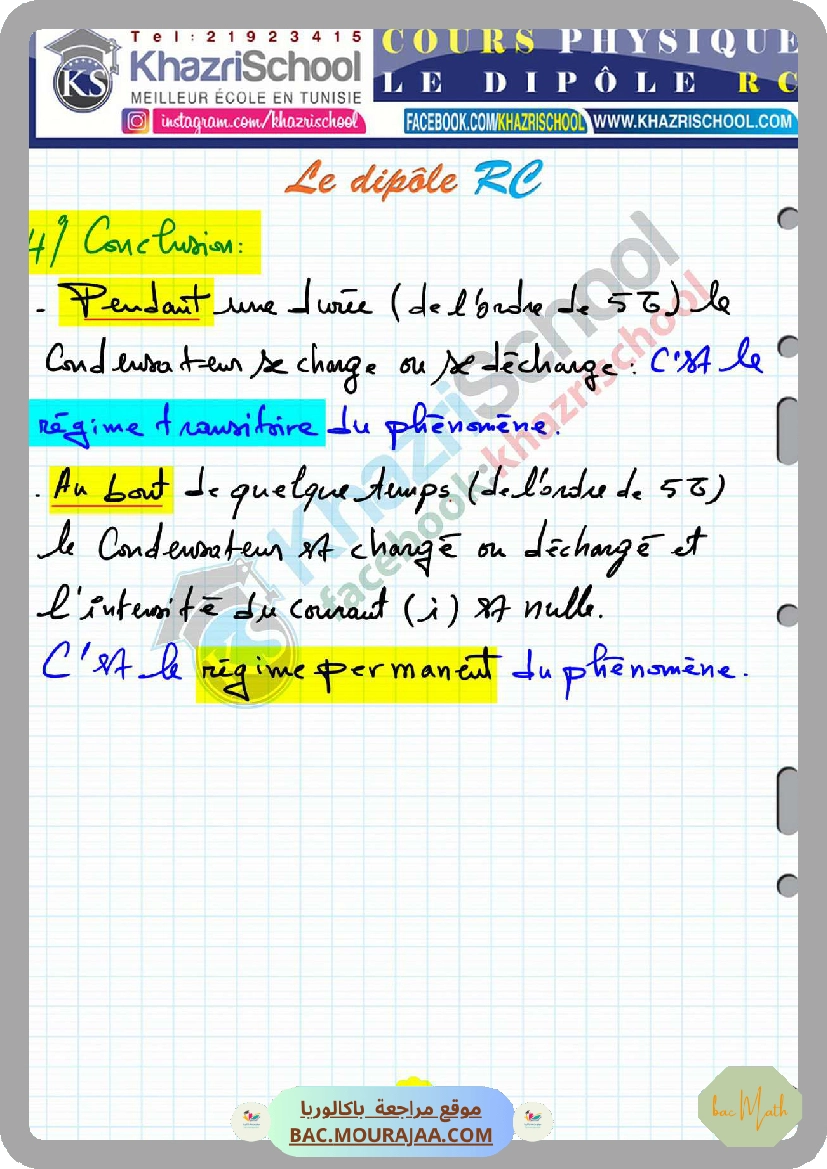 Tel:21923415
KhazriSchool
MEILLEUR ÉCOLE EN TUNISIE
instagram.com/khazrischool
COURS PHYSIQUE
LE DIPÔLE RC
FACEBOOK.COM/KHAZRISCHOOL WWW.KHAZRISCHOOL.COM
KS
Le dipôle RC
4) Conclusion:
. Pendant une durée (de l'ordre de 5τ) le
Condensateur se charge ou se décharge : C'est le
régime transitoire du phénomène.
. Au bout de quelque temps (de l'ordre de 5τ)
le Condensateur est chargé ou déchargé et
l'intensité du courant (i) est nulle.
C'est le régime permanent du phénomène.
KhazriSchool
facebook:khazrischool
KS
موقع مراجعة باكالوريا
BAC.MOURAJAA.COM
bac Math